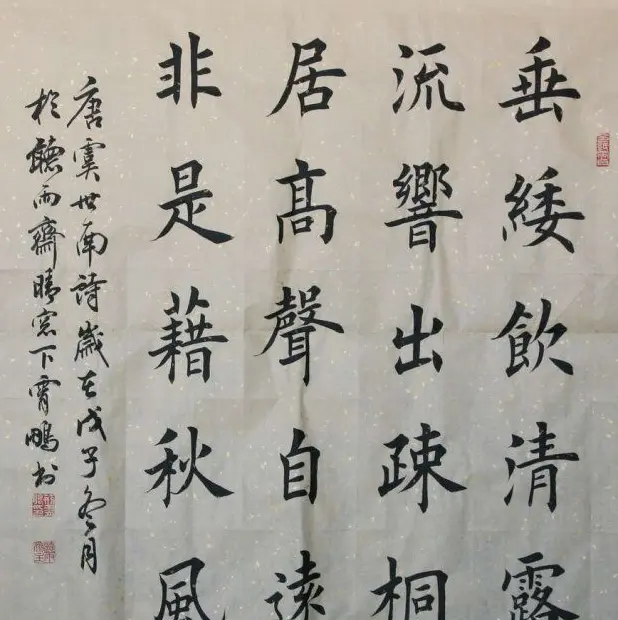 垂緌飲清露
流響出疎桐
居高聲自遠
非是藉秋風
唐虞世南詩歲在戊子冬月
於聽雨齋晴窓下霄鵬書